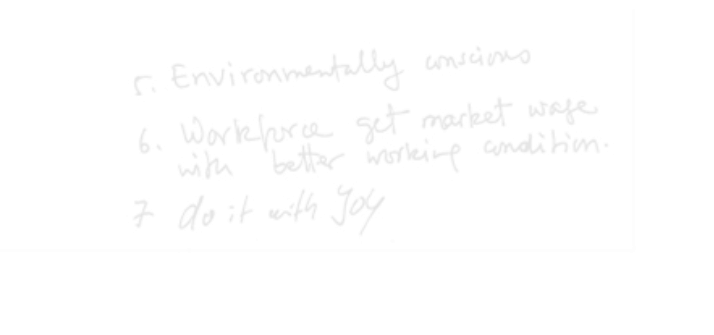 5. Environmentally conscious
6. Workforce get market wage
with better working condition.
7 do it with Joy